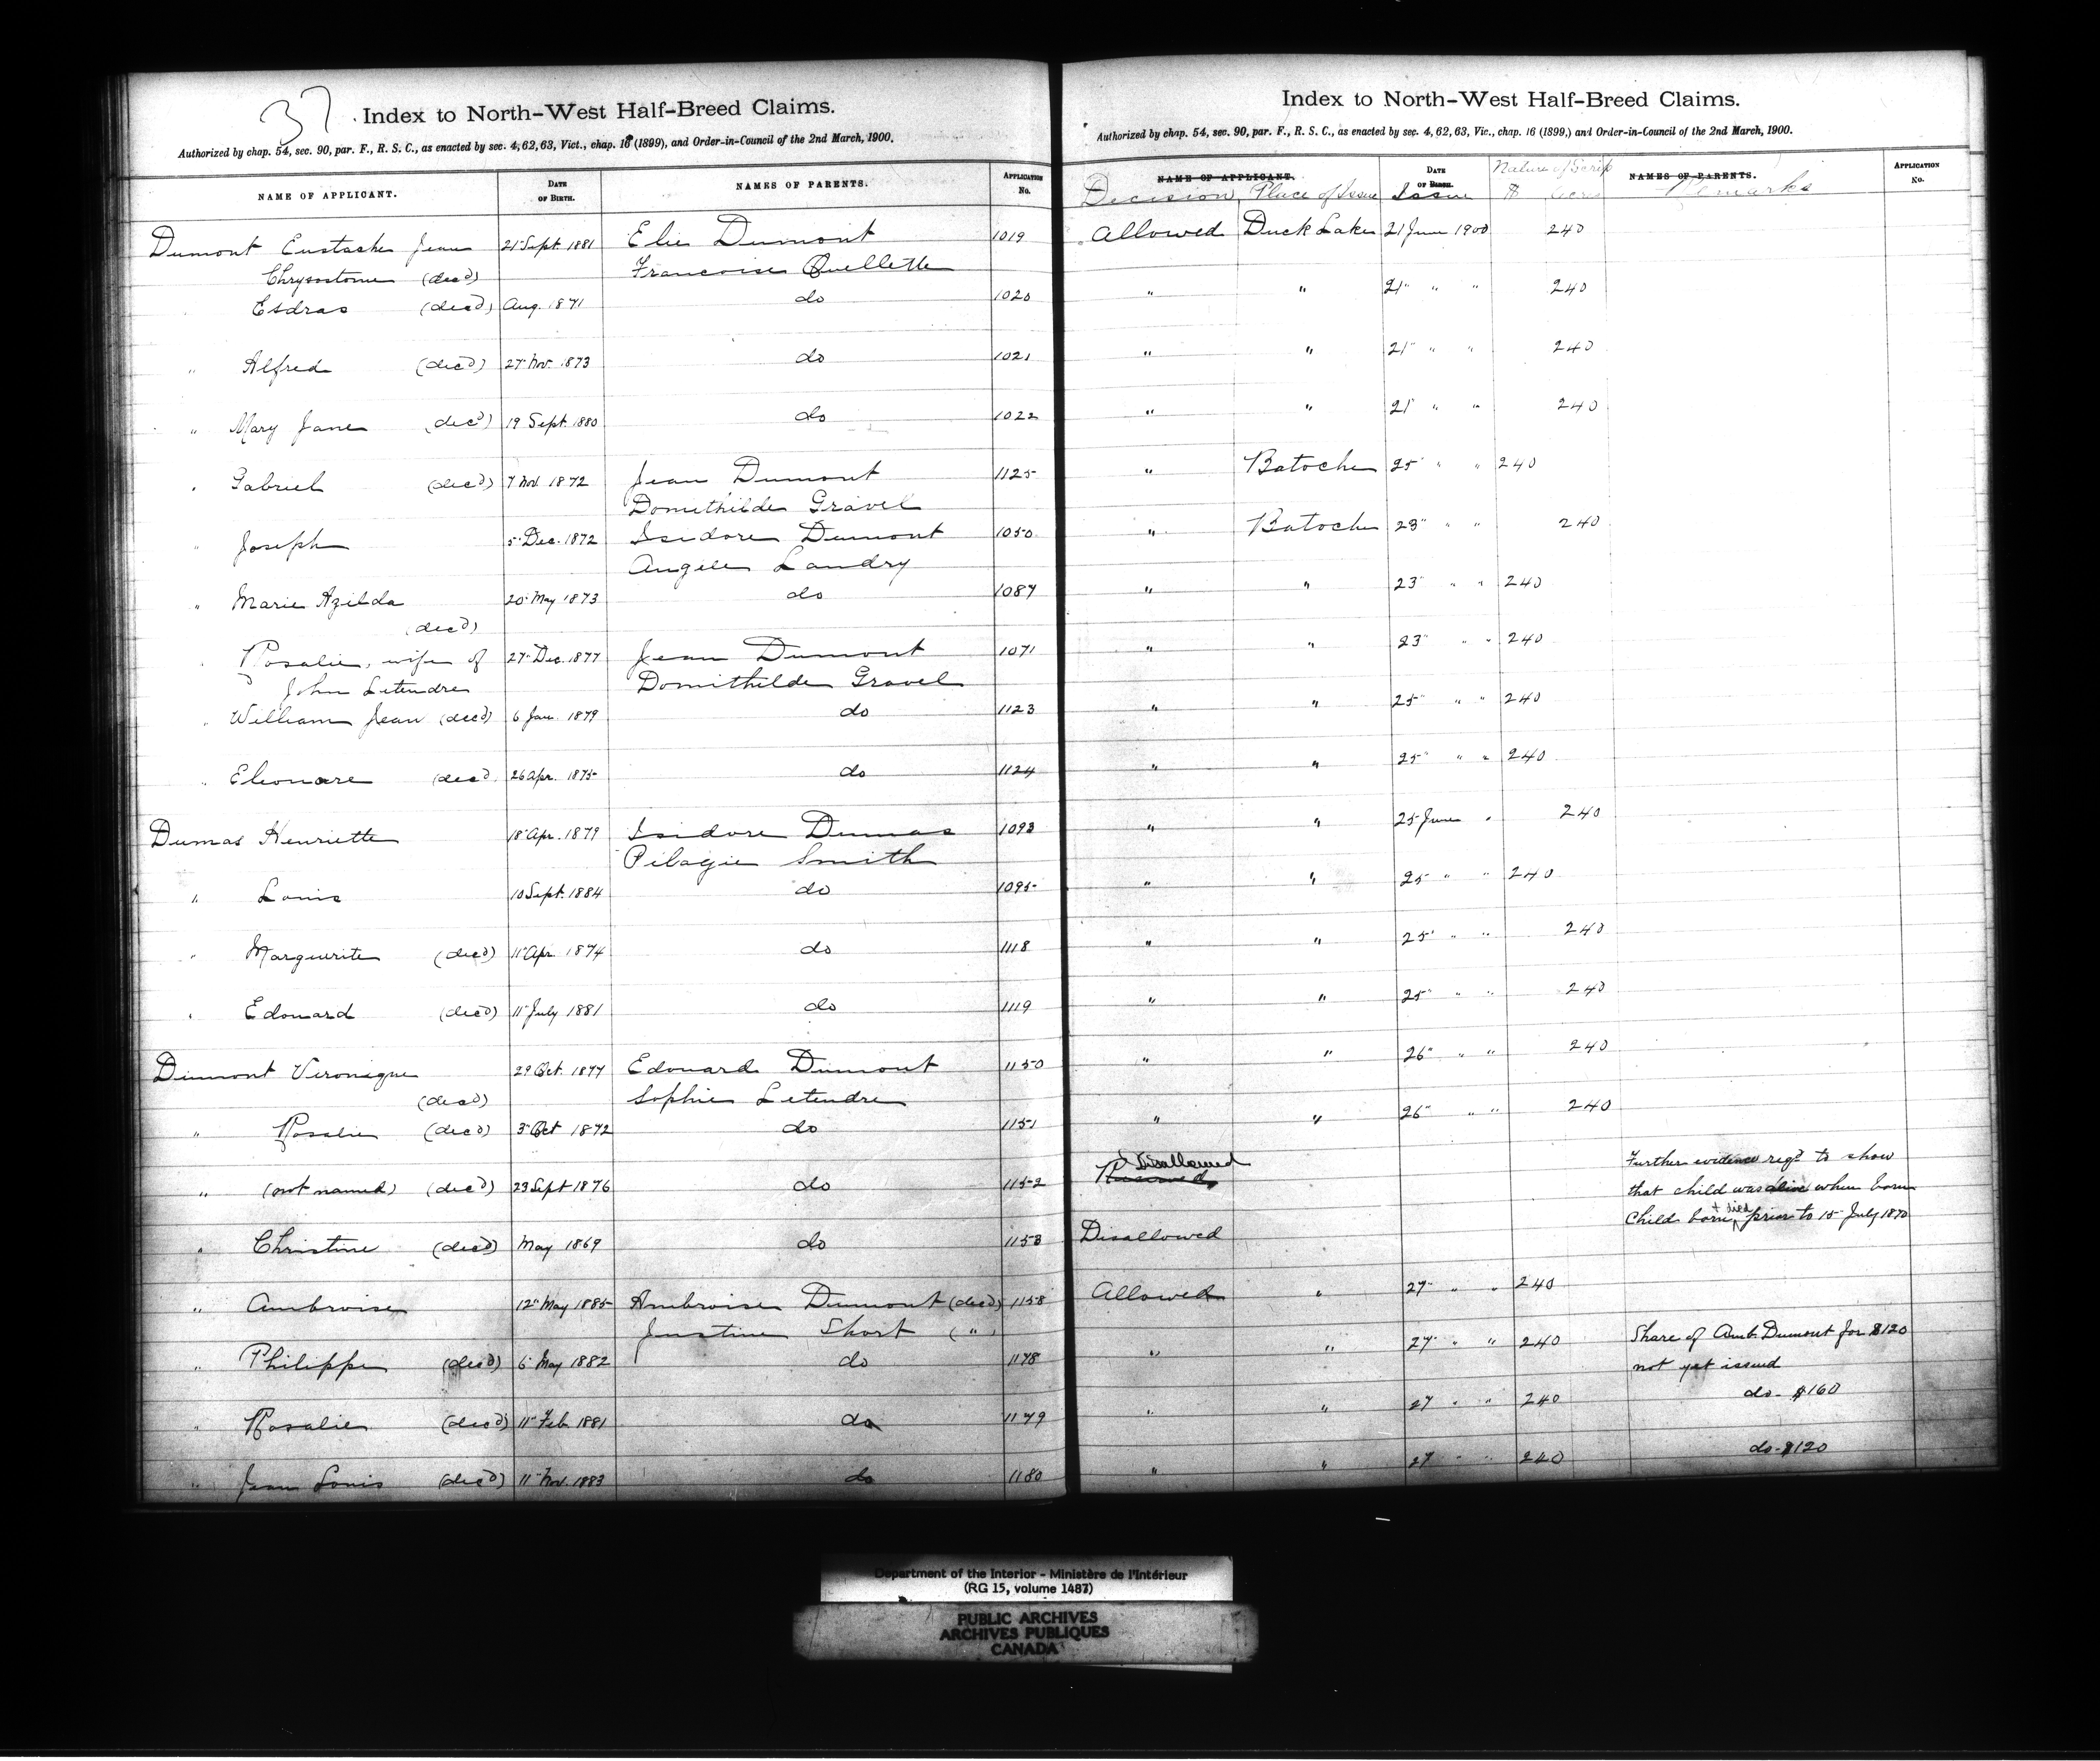 37
Index to North-West Half-Breed Claims.
Authorized by chap. 54, sec. 90, par. F., R. S. C., as enacted by sec. 4, 62, 63, Vict., chap. 16 (1899), and Order-in-Council of the 2nd March, 1900.
NAME OF APPLICANT. DATE OF BIRTH. NAMES OF PARENTS. APPLICATION No.
Dumont Eustache Jean 21 Sept. 1881 Elie Dumont 1019
Chrysostome (dec'd) Francoise Quellette
Esdras (dec'd) Aug. 1871 do 1020
" Alfred (dec'd) 27 Nov. 1873 do 1021
" Mary Jane (dec'd) 19 Sept. 1880 do 1022
" Gabriel (dec'd) 7 Nov. 1872 Jean Dumont 1125
Domithilde Gravel
" Joseph 5 Dec. 1872 Isidore Dumont 1050
Angele Landry
" Marie Azilda 20 May 1873 do 1087
(dec'd)
" Rosalie, wife of 27 Dec. 1877 Jean Dumont 1071
John Letendre Domithilde Gravel
" William Jean (dec'd) 6 Jan. 1879 do 1123
" Eleonare (dec'd) 26 Apr. 1875 do 1124
Dumas Henriette 18 Apr. 1879 Isidore Dumas 1093
Pilagie Smith
" Louis 10 Sept. 1884 do 1095
" Marguerite (dec'd) 11 Apr. 1874 do 1118
" Edouard (dec'd) 11 July 1881 do 1119
Dumont Veronique 29 Oct. 1877 Edouard Dumont 1150
(dec'd) Sophie Letendre
" Rosalie (dec'd) 3 Oct 1872 do 1151
" (not named) (dec'd) 23 Sept 1876 do 1152
" Christine (dec'd) May 1869 do 1153
" Ambroise 12 May 1885 Ambroise Dumont (dec'd) 1158
Justine Short ( " )
" Philippe (dec'd) 6 May 1882 do 1178
" Rosalie (dec'd) 11 Feb. 1881 do 1179
" Jean Louis (dec'd) 11 Nov. 1883 do 1180
Index to North-West Half-Breed Claims.
Authorized by chap. 54, sec. 90, par. F., R. S. C., as enacted by sec. 4, 62, 63, Vic., chap. 16 (1899,) and Order-in-Council of the 2nd March, 1900.
NAME OF APPLICANT. DATE OF BIRTH. Nature of Scrip NAMES OF PARENTS. APPLICATION No.
Decision Place of Issue Issue $ acres Remarks
Allowed Duck Lake 21 June 1900 240
" " 21 " " 240
" " 21 " " 240
" " 21 " " 240
" Batoche 25 " " 240
" Batoche 23 " " 240
" " 23 " " 240
" " 23 " " 240
" " 25 " " 240
" " 25 " " 240
" " 25 June " 240
" " 25 " " 240
" " 25 " " 240
" " 25 " " 240
" " 26 " " 240
" " 26 " " 240
Disallowed Further evidence reqd to show
Reserved that child was alive when born
Child born + died prior to 15 July 1870
Disallowed
Allowed " 27 " " 240
" " 27 " " 240 Share of Amb. Dumont for $120
not yet issued
" " 27 " " 240 do - $160
" " 27 " " 240 do - $120
Department of the Interior - Ministère de l'Intérieur
(RG 15, volume 1487)
PUBLIC ARCHIVES
ARCHIVES PUBLIQUES
CANADA